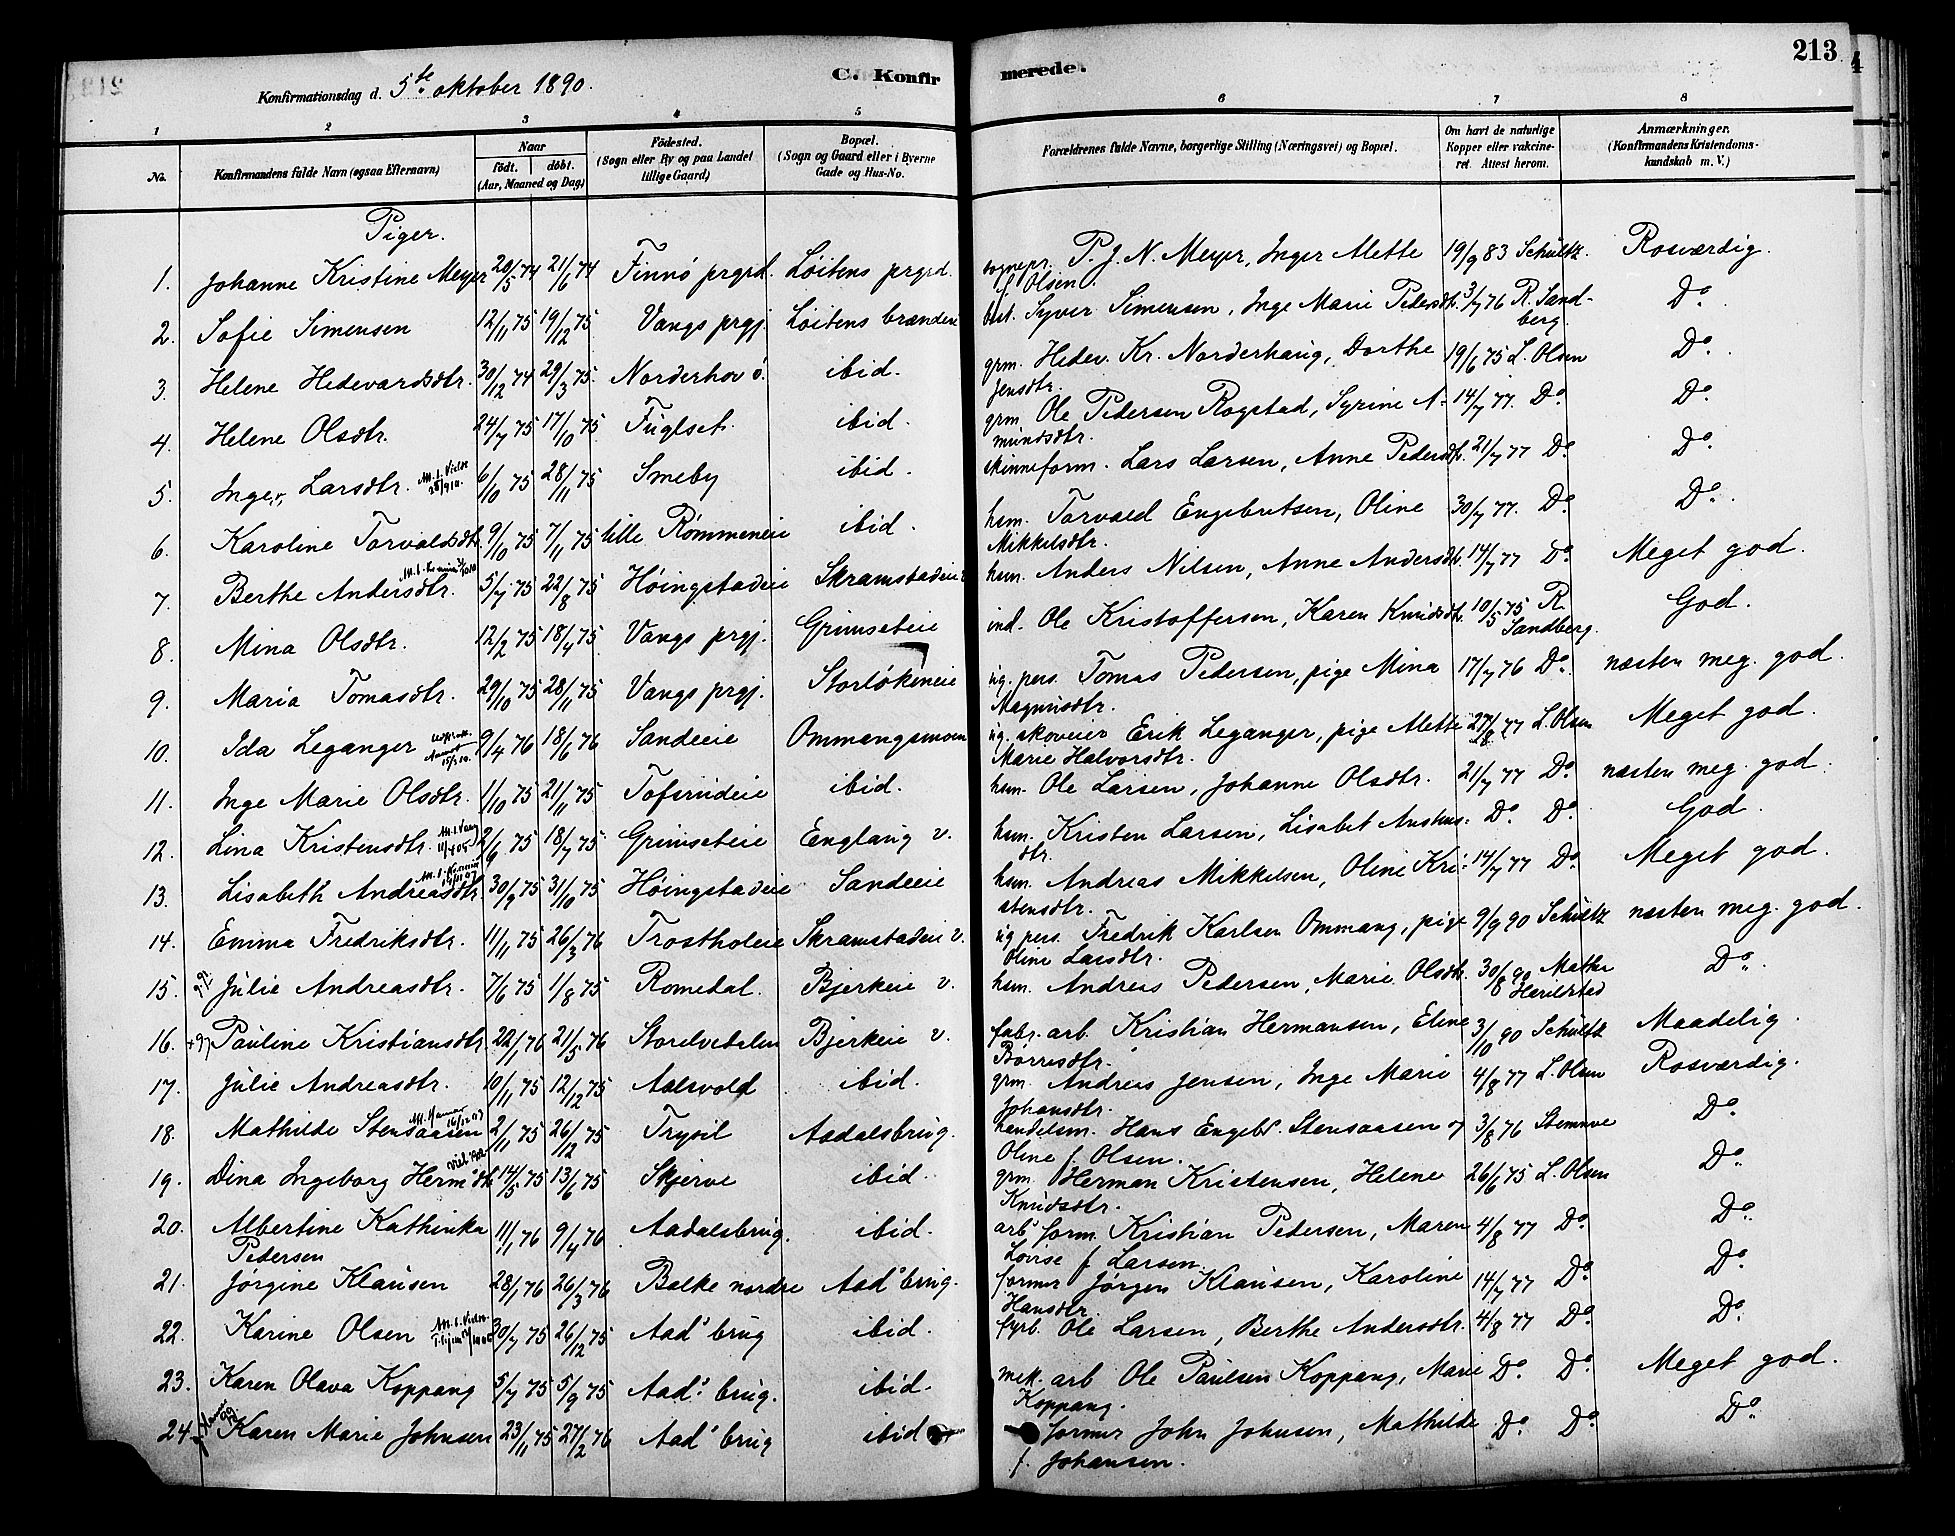 213
C. Konfirmerede.
Konfirmationsdag d. 5te oktober 1890.
1 2 3 4 5 6 7 8
No. Konfirmandens fulde Navn (ogsaa Efternavn) Naar födt. döbt. (Aar, Maaned og Dag) Födested. (Sogn eller By og paa Landet tillige Gaard) Bopæl. (Sogn og Gaard eller i Byerne Gade og Hus-No. Forældrenes fulde Navne, borgerlige Stilling (Næringsvei) og Bopæl. Om havt de naturlige Kopper eller vakcineret. Attest herom. Anmærkninger. (Konfirmandens Kristendomskundskab m. V.)
Piger.
1. Johanne Kristine Meyer 20/5 74 21/6 74 Finnö prgrd. Löitens prgrd. sognepr. P. J. N. Meyer, Inger Alette f. Olsen 19/9 83 Schultz. Rosværdig.
2. Sofie Simensen 12/11 75 19/12 75 Vangs prgj. Löitens brænderi best. Syver Simensen, Inge Marie Pedersdtr. 3/7 76 R. Sandberg. Do.
3. Helene Hedevardsdtr. 30/12 74 29/3 75. Norderhov ö. ibid. grm. Hedev. Kr. Norderhaug, Dorthe Jensdtr. 19/6 75 L. Olsen Do.
4. Helene Olsdtr. 24/7 75 17/10 75 Fuglset. ibid. grm. Ole Pedersen Rogstad, Syrine Amundsdtr. 14/7 77. Do. Do.
5. Inger Larsdtr. 6/10 75 28/11 75 Smeby ibid. skinneform. Lars Larsen, Anne Pedersdtr. 21/7 77 Do. Do.
6. Karoline Torvaldsdtr. 9/10 75 7/11 75 lille Römmeneie ibid. hsm. Torvald Engebretsen, Oline Mikkelsdtr. 30/7 77. Do. Do.
7. Berthe Andersdtr. 5/7 75 22/8 75 Höingstadeie Skramstadeie hsm. Anders Nilsen, Anne Andersdtr. 14/7 77 Do. Meget god.
8. Mina Olsdtr. 12/2 75 18/4 75 Vangs prgj. Grimseteie ind. Ole Kristoffersen, Karen Knudsdtr. 10/5 75 R. Sandberg. God.
9. Maria Tomasdtr. 29/10 75 28/11 75 Vangs prgj. Storlökeneie ug. pers. Tomas Pedersen, pige Mina Magnusdtr. 17/7 76 Do. næsten meg. god.
10. Ida Leganger 9/4 76 18/6 76 Sandeeie Ommangsmoen ug. skoveier Erik Leganger, pige Alette Marie Halvorsdtr. 27/8 77 L. Olsen Meget god.
11. Inge Marie Olsdtr. 1/10 75 21/11 75 Tofsrudeie ibid. hsm. Ole Larsen, Johanne Olsdtr. 21/7 77 Do. næsten meg. god.
12. Lina Kristensdtr. 2/6 75 18/7 75 Grimseteie Englaug v. hsm. Kristen Larsen, Lisabet Anthus.dtr. Do. Do. God.
13. Lisabeth Andreasdtr. 30/9 75 31/10 75 Höingstadeie Sandeeie hsm. Andreas Mikkelsen, Oline Kristensdtr. 14/7 77 Do. Meget god.
14. Emma Fredriksdtr. 11/11 75 26/3 76 Trostholeie Skramstadeie v. ug pers. Fredrik Karlsen Ommang, pige Oline Larsdtr. 9/9 90 Schultz næsten meg. god.
15. Julie Andreasdtr. 7/6 75 1/8 75 Romedal. Bjerkeie v. hsm. Andreas Pedersen, Marie Olsdtr. 30/8 90 Mathea Herilstad Do.
16. Pauline Kristiansdtr. 22/1 76 21/5 76 Storelvedalen Bjerkeie v. fabr. arb. Kristian Hermansen, Eline Börresdtr. 3/10 90 Schultz Maadelig.
17. Julie Andreasdtr. 10/11 75 12/12 75 Aalsvold ibid. grm. Andreas Jensen, Inge Marie Johansdtr. 4/8 77 L. Olsen Rosværdig.
18. Mathilde Stensaasen 2/11 75 26/12 75 Trysil Aadalsbrug. handelsm. Hans Engebr. Stensaasen og Oline f. Olsen. 3/8 76 Stemme Do.
19. Dina Ingeborg Herm.dtr 14/5 75 13/6 75 Skjerve ibid. grm. Herman Kristensen, Helene Knudsdtr. 26/6 75 L. Olsen Do.
20. Albertine Kathinka Pedersen 11/1 76 9/4 76 Aadalsbrug. ibid. arb. form. Kristian Pedersen, Maren Lovise f. Larsen. 4/8 77 Do. Do.
21. Jörgine Klausen 28/1 76 26/3 76 Balke nordre Aads brug. former Jörgen Klausen, Karoline Hansdtr. 14/7 77 Do. Do.
22. Karine Olsen 30/7 75 26/12 75 Aads brug ibid. fyrb. Ole Larsen, Berthe Andersdtr. 4/8 77 Do. Do.
23. Karen Olava Koppang 5/7 75 5/9 75 Aads. brug. ibid. mek. arb Ole Paulsen Koppang, Marie Koppang. Do. Do. Meget god.
24. Karen Marie Johnsen 23/11 75 27/2 76 Aads brug ibid former John Johnsen, Mathilde f. Johansen. Do. Do. Do.